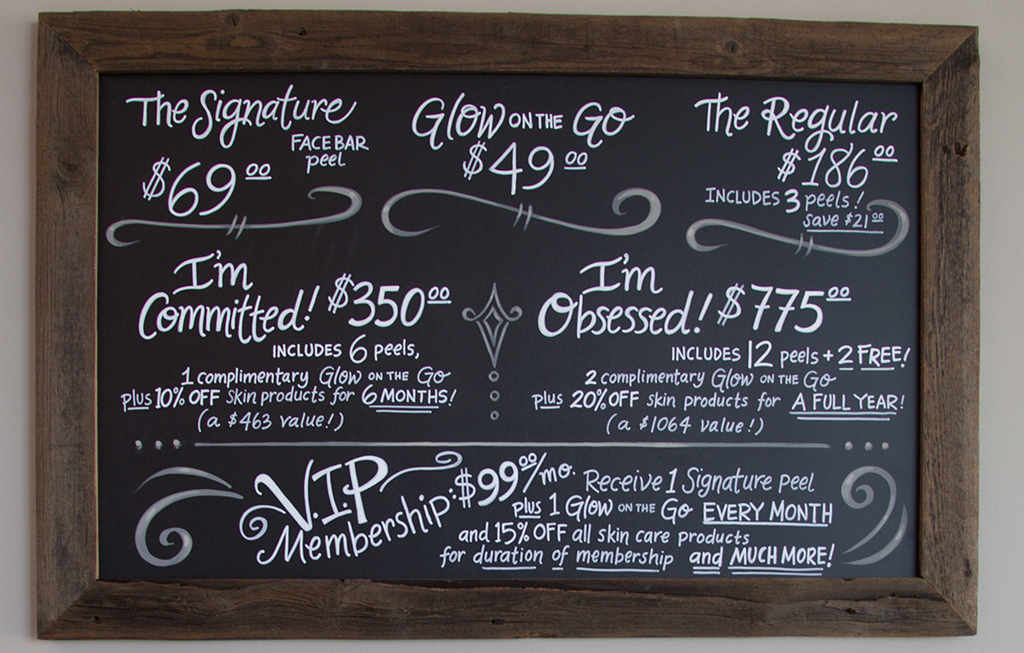 The Signature
FACE BAR
peel
$69.00
Glow ON THE Go
$49.00
The Regular
$186.00
INCLUDES 3 peels!
save $21.00
I'm
Committed! $350.00
INCLUDES 6 peels,
1 complimentary Glow ON THE Go
plus 10% OFF skin products for 6 MONTHS!
(a $463 value!)
I'm
Obsessed! $775.00
INCLUDES 12 peels + 2 FREE!
2 complimentary Glow ON THE Go
plus 20% OFF skin products for A FULL YEAR!
(a $1064 value!)
V.I.P
Membership: $99.00/mo.
Receive 1 Signature peel
plus 1 Glow ON THE Go EVERY MONTH
and 15% OFF all skin care products
for duration of membership and MUCH MORE!